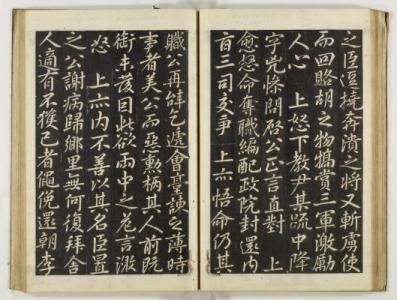 之臣逗撓奔潰之將又斬虜使
而回賂胡之物犒賞三軍激勵
人心 上怒下教其疏中降
字條問啓公正言直對 上
愈怒命奪職編配政院封還內
旨三司交爭 上亦悟命仍其
職公再辭乞遞會臺諫之薄時
事者美公而惡勳柄其人前既
銜未發因此欲兩中之危言激
怒 上亦內不善以其名臣置
之公謝病歸鄉里無何復拜舍
人適有不獲已者僶俛還朝李